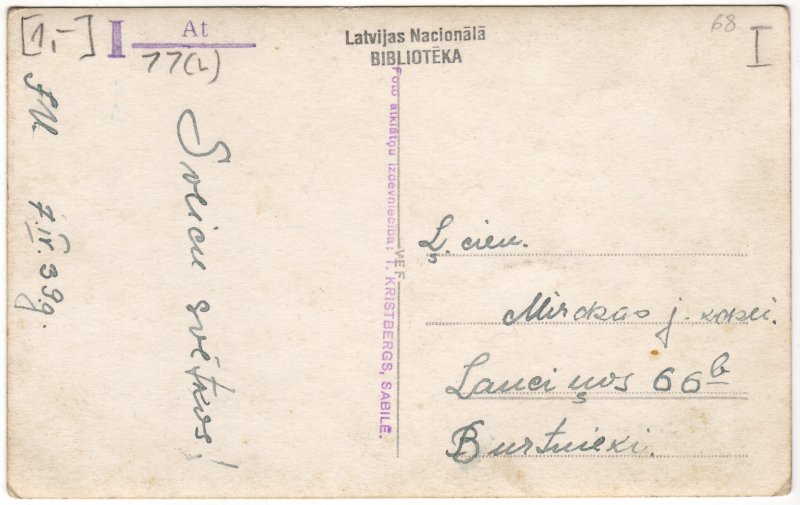 [1,-]
I
At
11(2)
Latvijas Nacionālā
BIBLIOTĒKA
68
I
Sveicu svētkos!
7.IV.39g.
Foto atklātņu izdevniecība: T. KRISTBERGS, SABILĒ.
VEF
Ļ. cien.
j. kdzei.
Lauciņos 66b
Burtnieki.